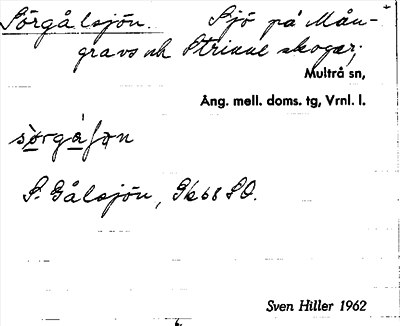 Sörgålsjön. Sjö på Mån-
gravs och Strinne skogar;
Multrå sn,
Ång. mell. doms. tg, Vrnl. l.
S. Gålsjön, Gk 68 SO.
Sven Hiller 1962